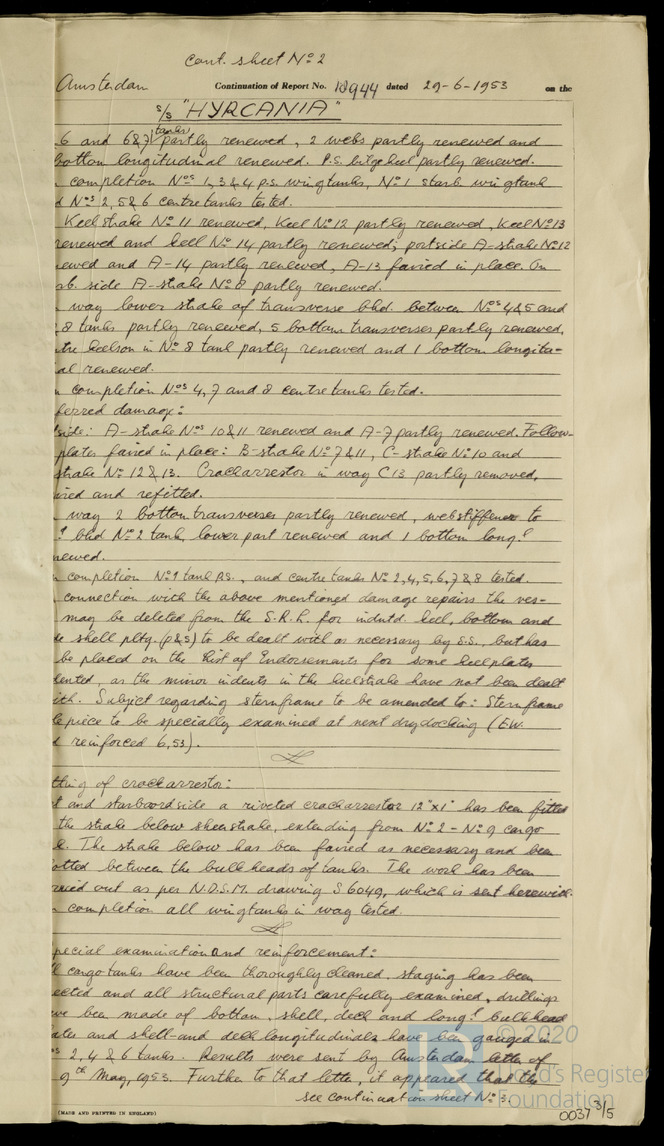 cont. sheet No: 2
Amsterdam Continuation of Report No. 18944 dated 29-6-1953 on the
s/s "HYRCANIA"
6 and 6&7 tanks partly renewed, 2 webs partly renewed and
bottom longitudinal renewed. P.S. bilgekeel partly renewed.
completion Nos 1,3&4 p.s. wingtanks, No: 1 starb. wingtank
d Nos 2,5&6 centretanks tested.
Keel strake No: 11 renewed, Keel No: 12 partly renewed, Keel No: 13
renewed and keel No: 14 partly renewed; portside A-strake No: 12
ewed and A-14 partly renewed, A-13 faired in place. On
sb. side A-strake No: 8 partly renewed.
way lower strake of transverse bhd. between Nos 4&5 and
8 tanks partly renewed, 5 bottom transverses partly renewed,
tre keelson in No: 8 tank partly renewed and 1 bottom longitu-
al renewed.
completion Nos 4,7 and 8 centre tanks tested.
ferred damage:
tside: A-strake Nos 10&11 renewed and A-7 partly renewed. Follow-
plates faired in place: B-strake No: 7&11, C-strake No: 10 and
strake No: 12&13. Crackarrestor in way C13 partly removed,
ired and refitted.
way 2 bottom transverses partly renewed, webstiffener to
bhd No: 2 tank, lower part renewed and 1 bottom longl
newed.
completion No: 1 tank P.S., and centre tanks No: 2,4,5,6,7&8 tested.
connection with the above mentioned damage repairs the ves-
may be deleted from the S.R.L. for indntd. keel, bottom and
de shell pltg. (p&s) to be dealt with as necessary by S.S., but has
be placed on the List of Endorsements for some keelplates
dented, as the minor indents in the keelstrake have not been dealt
ith. Subject regarding sternframe to be amended to: Sternframe
lepiece to be specially examined at next drydocking (EW.
d reinforced 6,53).
tting of crackarrestor:
t and starboardside a riveted crackarrestor 12"x1" has been fitted
the strake below sheerstrake, extending from No: 2 - No: 9 cargo
k. The strake below has been faired as necessary and been
otted between the bulkheads of tanks. The work has been
rried out as per N.D.S.M. drawing S 6049, which is sent herewith.
completion all wingtanks in way tested.
pecial examination and reinforcement:
l cargotanks have been thoroughly cleaned, staging has been
ected and all structural parts carefully examined, drillings
ve been made of bottom, shell, deck and longl bulkhead
ates and shell- and deck longitudinals have been gauged in
os 2,4 & 6 tanks. Results were sent by Amsterdam letter of
9th May, 1953. Further to that letter, it appeared that the
see continuation sheet No: 3.
(MADE AND PRINTED IN ENGLAND)
© 2020
Lloyd's Register
Foundation
0037 3/5